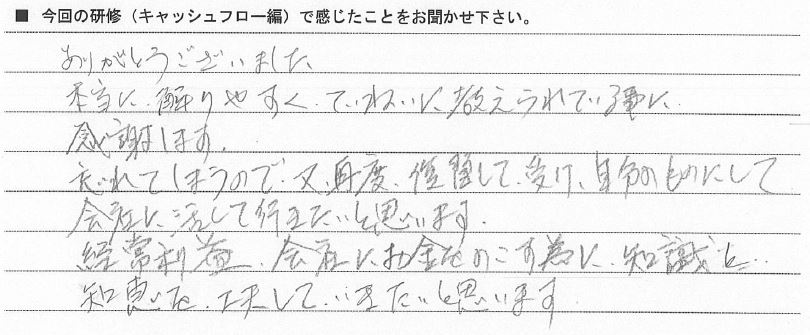 ■ 今回の研修（キャッシュフロー編）で感じたことをお聞かせ下さい。
ありがとうございました
本当に、解りやすく、ていねいに、教えられている事に、
感謝します。
忘れてしまうので、又、再度、復習して、受け、自分のものにして
会社に、活して行きたいと思います。
経常利益、会社にお金をのこす為に、知識と、
知恵を、工夫して、いきたいと思います